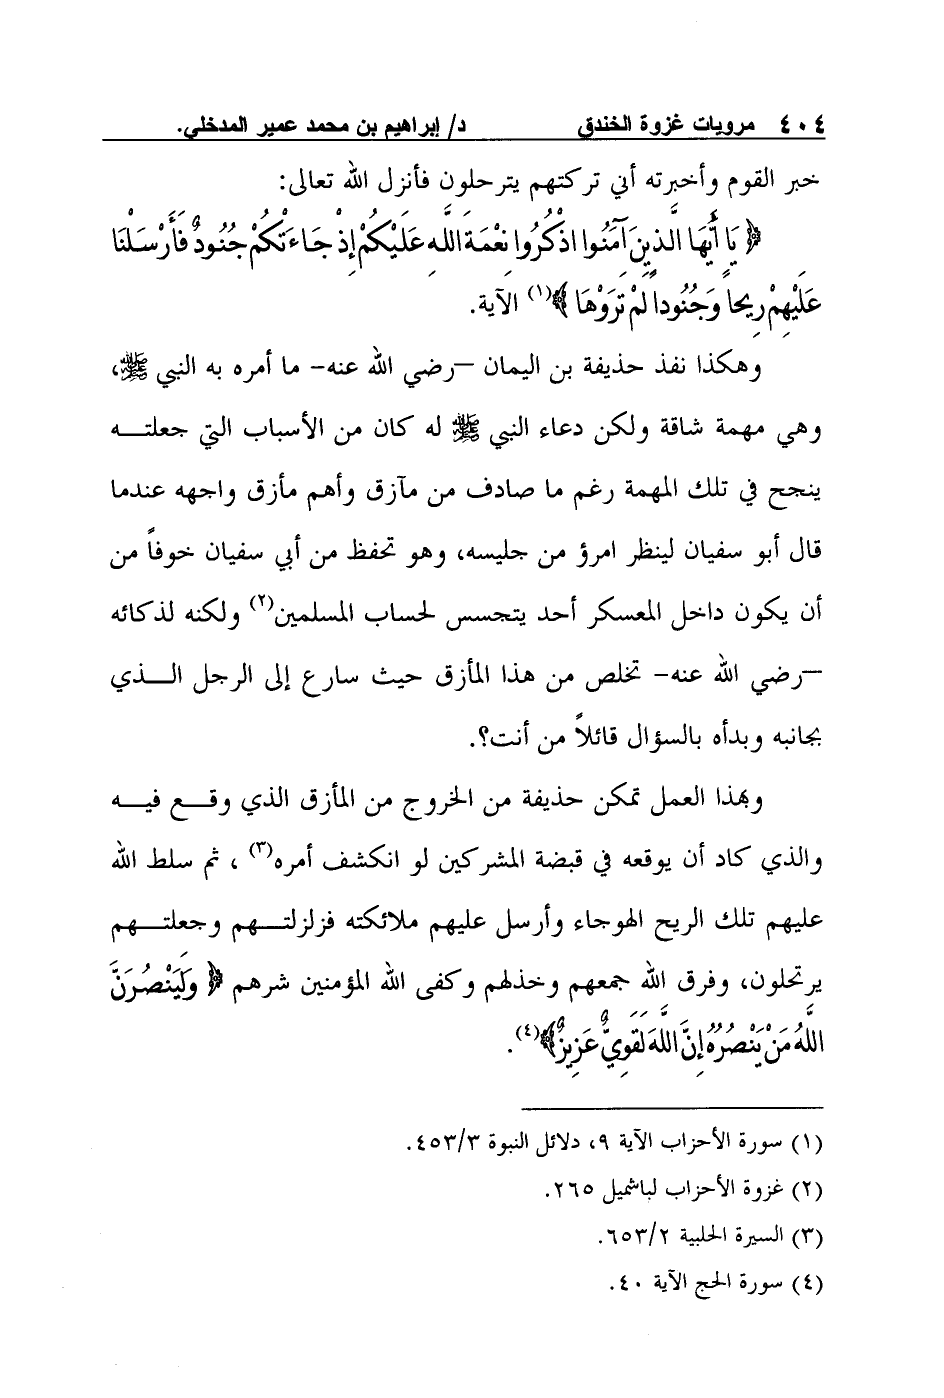 ٤٠٤ مرويات غزوة الخندق د/ إبراهيم بن محمد عمير المدخلي.
خبر القوم وأخبرته أني تركتهم يترحلون فأنزل الله تعالى:
﴿ يَا أَيُّهَا الَّذِينَ آمَنُوا اذْكُرُوا نِعْمَةَ اللَّهِ عَلَيْكُمْ إِذْ جَاءَتْكُمْ جُنُودٌ فَأَرْسَلْنَا
عَلَيْهِمْ رِيحاً وَجُنُوداً لَمْ تَرَوْهَا ﴾(١) الآية.
وهكذا نفذ حذيفة بن اليمان –رضي الله عنه– ما أمره به النبي ﷺ،
وهي مهمة شاقة ولكن دعاء النبي ﷺ له كان من الأسباب التي جعلتـــه
ينجح في تلك المهمة رغم ما صادف من مآزق وأهم مأزق واجهه عندما
قال أبو سفيان لينظر امرؤ من جليسه، وهو تحفظ من أبي سفيان خوفاً من
أن يكون داخل المعسكر أحد يتجسس لحساب المسلمين(٢) ولكنه لذكائه
–رضي الله عنه– تخلص من هذا المأزق حيث سارع إلى الرجل الـــذي
بجانبه وبدأه بالسؤال قائلاً من أنت؟.
وبهذا العمل تمكن حذيفة من الخروج من المأزق الذي وقـــع فيـــه
والذي كاد أن يوقعه في قبضة المشركين لو انكشف أمره(٣) ، ثم سلط الله
عليهم تلك الريح الهوجاء وأرسل عليهم ملائكته فزلزلتـــهم وجعلتـــهم
يرتحلون، وفرق الله جمعهم وخذلهم وكفى الله المؤمنين شرهم ﴿ وَلَيَنْصُرَنَّ
اللَّهُ مَنْ يَنْصُرُهُ إِنَّ اللَّهَ لَقَوِيٌّ عَزِيزٌ﴾(٤).
(١) سورة الأحزاب الآية ٩، دلائل النبوة ٤٥٣/٣.
(٢) غزوة الأحزاب لباشميل ٢٦٥.
(٣) السيرة الحلبية ٦٥٣/٢.
(٤) سورة الحج الآية ٤٠.